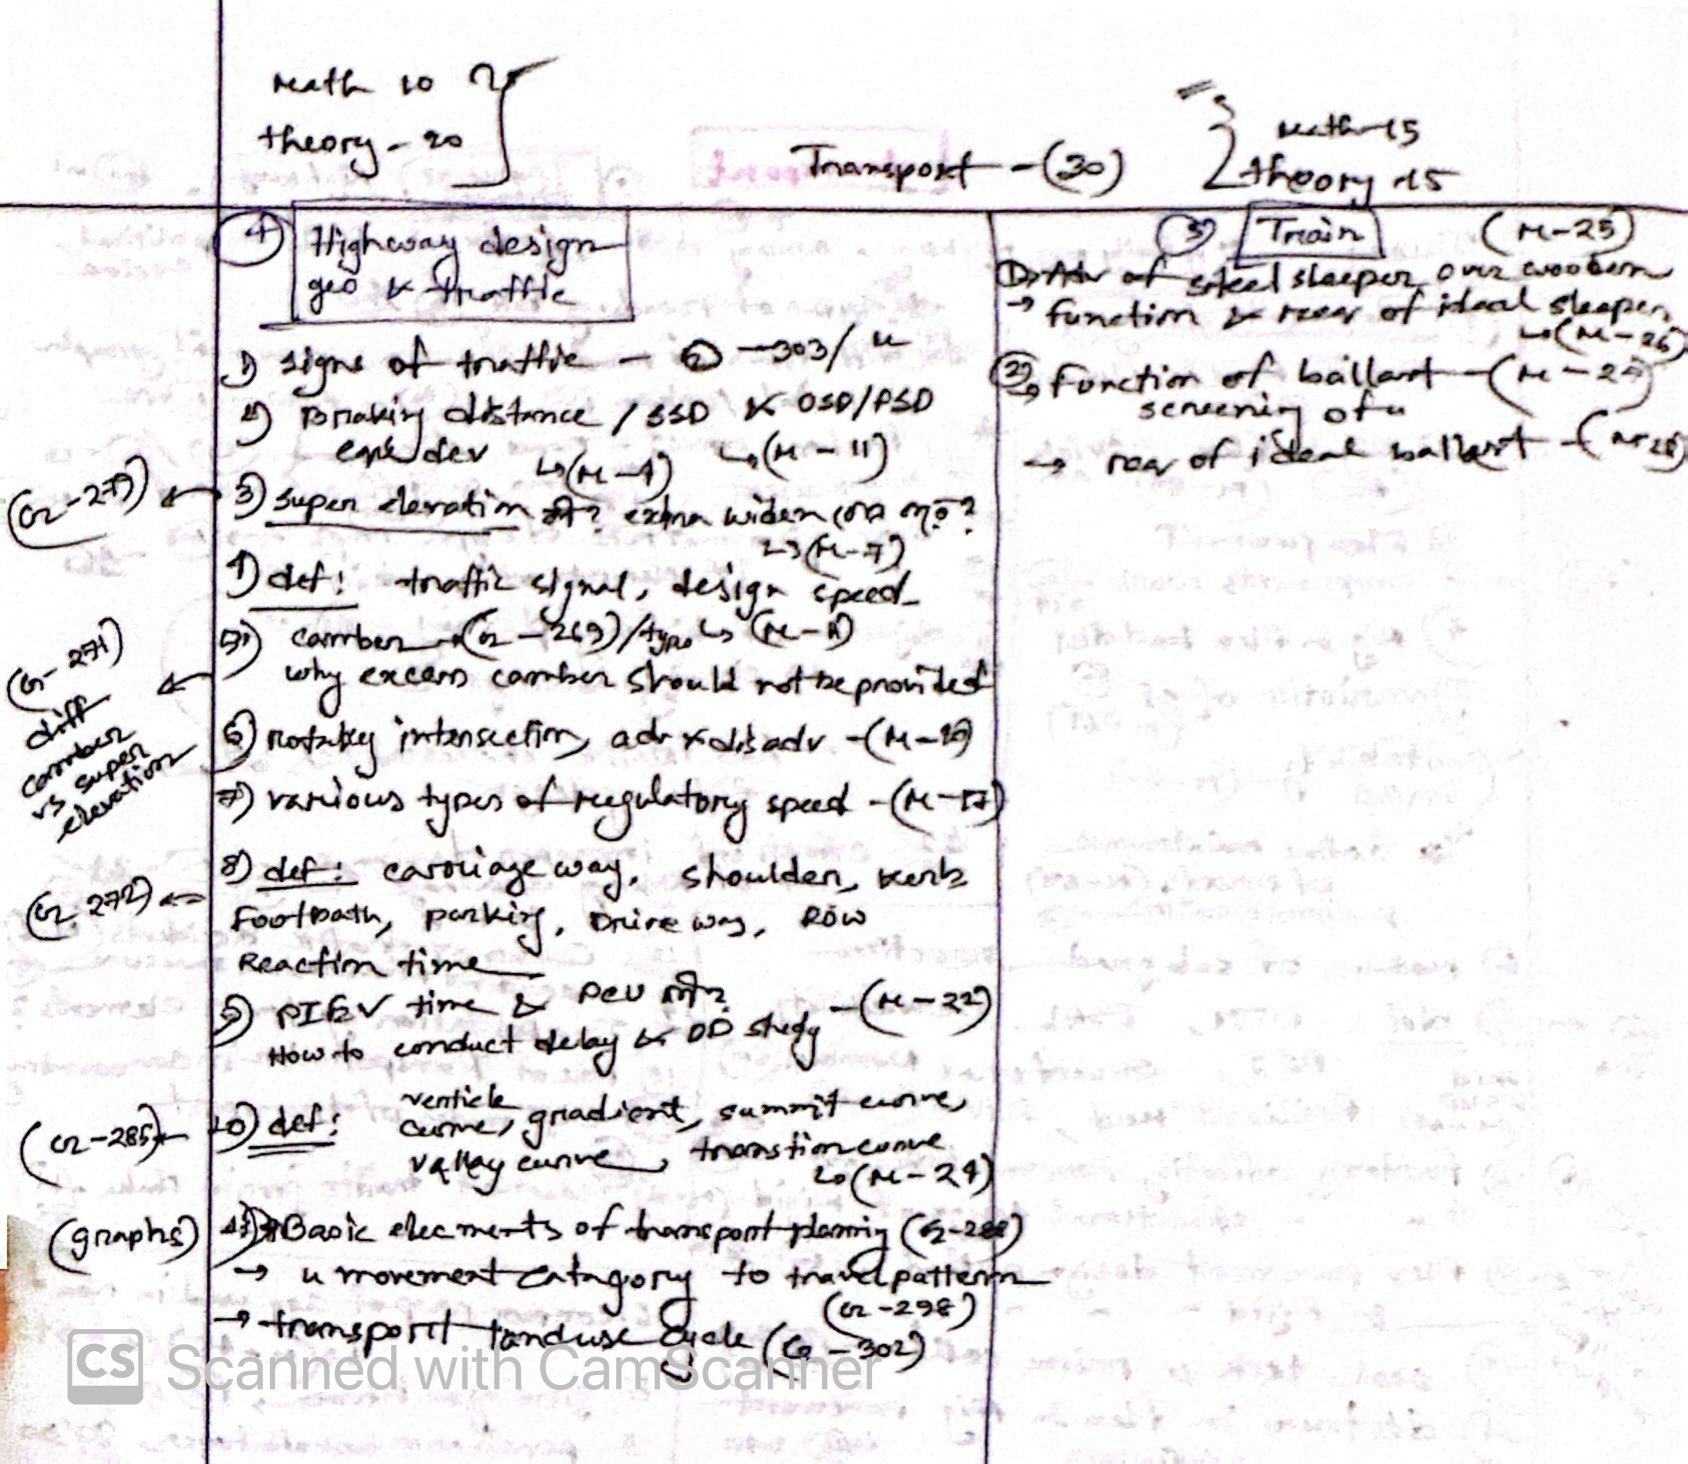 Math 10
theory - 20
Transport - (30)
Math-15
theory -15
4) Highway design
geo & traffic
1) signs of traffic - G - 303/ u
2) Braking distance / SSD & OSD/PSD
dev (M - 11)
3) super elevation extra widen
(M-7)
(G-271)
diff
camber
vs super
elevation
4) def: traffic signal, design speed
5) camber (G - 269)/type
why excess camber should not be provided
6) rotary intersection, adv & disadv
7) various types of regulatory speed - (M-17)
(G-272)
8) def: carriage way, shoulder, kerb
Footpath, parking, Drive way, ROW
Reaction time
9) PIEV time & PCU
How to conduct delay & OD study - (M - 22)
(G-285)
10) def: verticle
curve, gradient, summit curve,
valley curve, transtion curve
(M - 24)
(graphs)
11) Basic elecments of transport planning
→ u movement catagory to travel pattern
(G-298)
→ transport landuse cycle (G - 302)
5) Train (M-25)
1) Adv of steel sleeper over wooden
→ function & req of ideal sleeper
(M-26)
2) → Function of ballast
screening of u
→ req of ideal ballast
CS Scanned with CamScanner